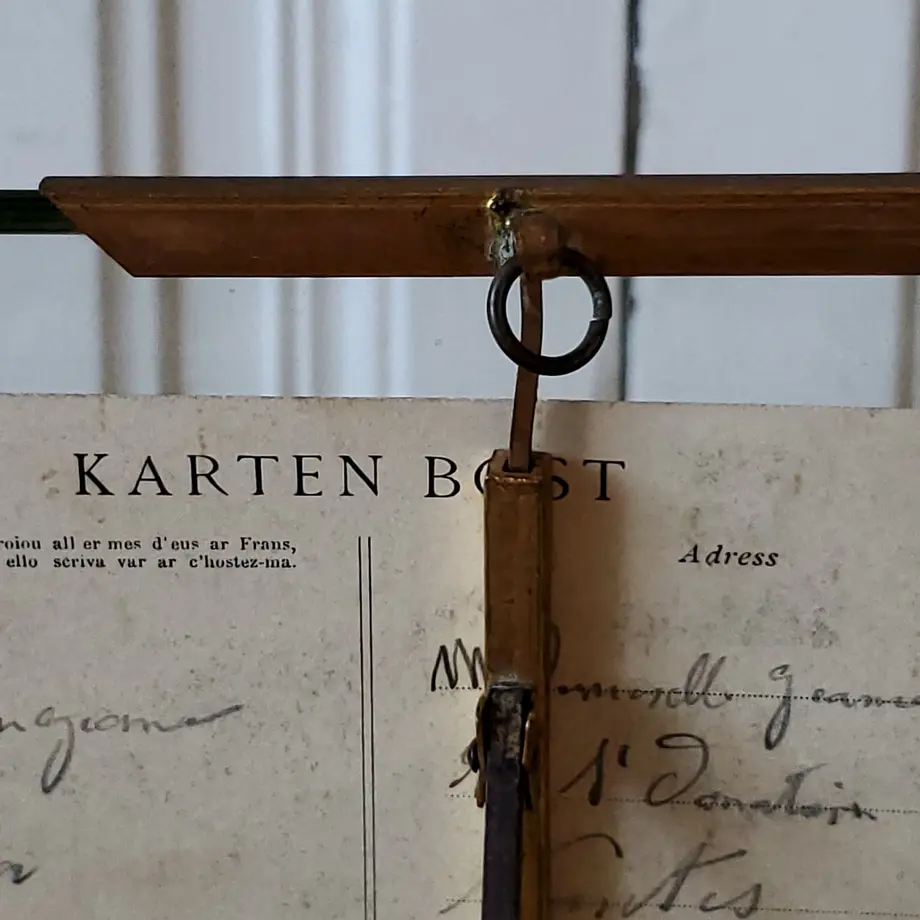 KARTEN BOST
roiou all er mes d'eus ar Frans,
ello scriva var ar c'hostez-ma.
Adress
Jeanne
St Donatien
Nantes